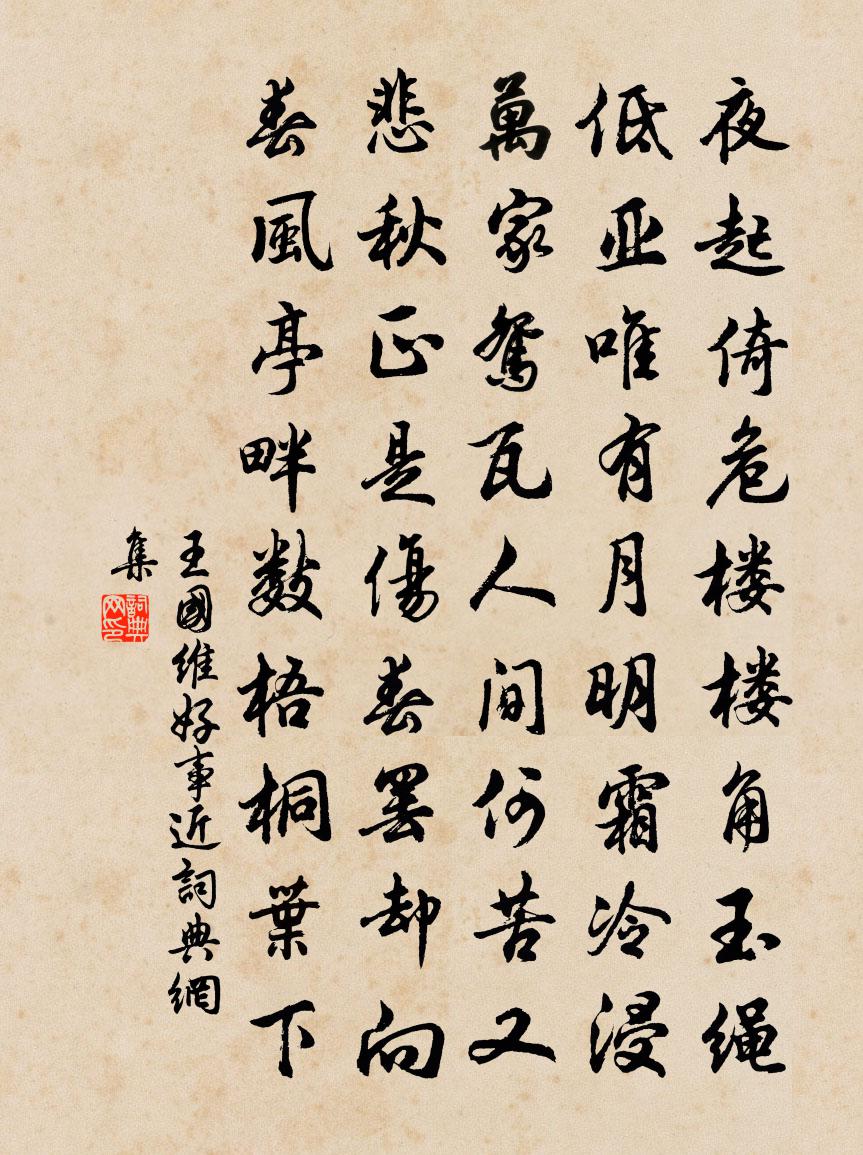 夜起倚危楼楼角玉绳
低亚唯有月明霜冷浸
萬家鴛瓦人间何苦又
悲秋正是傷春罢却向
春風亭畔数梧桐葉下
王國維好事近詞典網
集
詞典网印